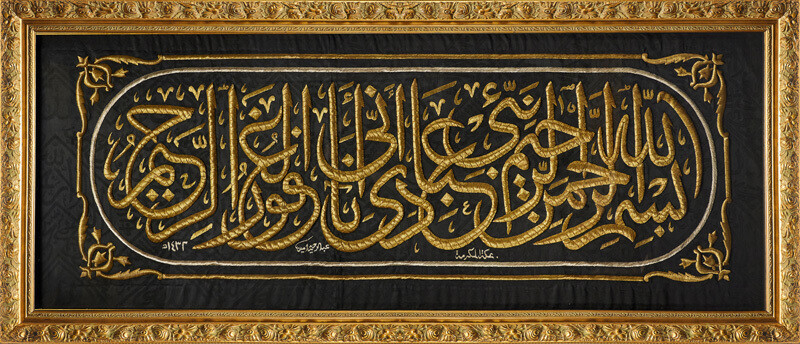 بِسْمِ اللَّهِ الرَّحْمَنِ الرَّحِيمِ نَبِّئْ عِبَادِي أَنِّي أَنَا الْغَفُورُ الرَّحِيمُ
بمكة المكرمة عبدالرحيم امين ١٤٣٢هـ